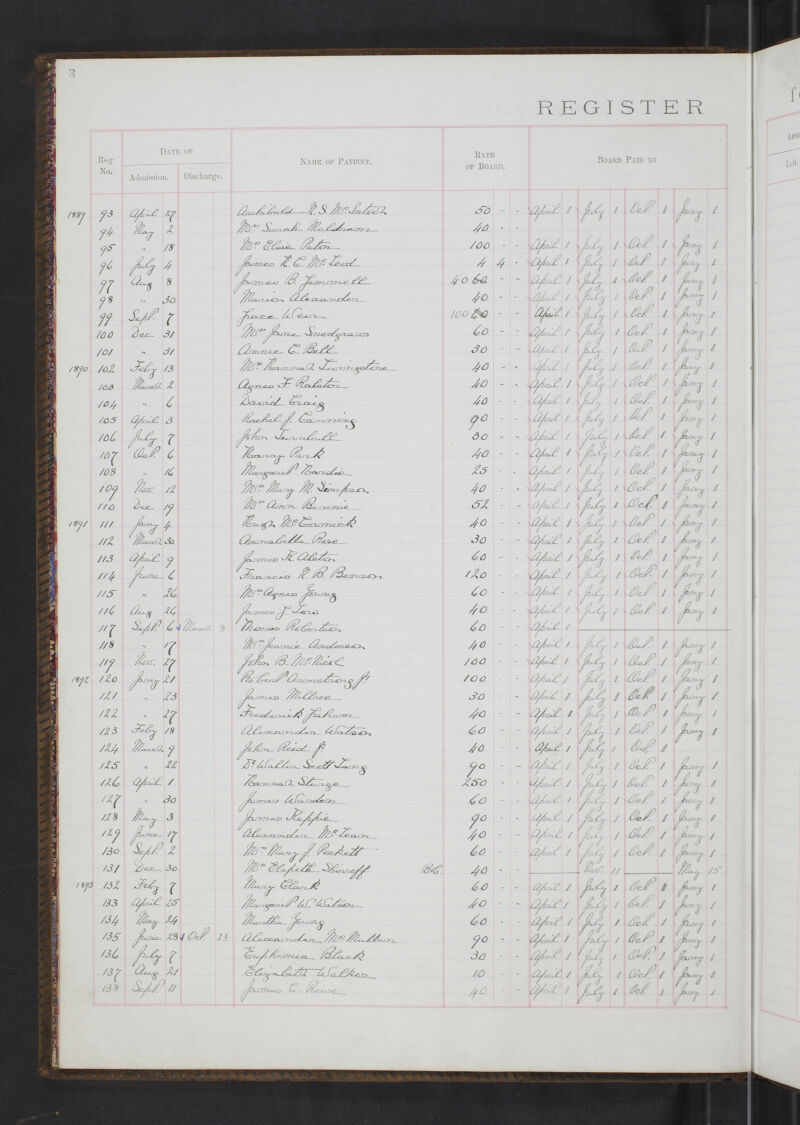 3
REGISTER
Reg No. DATE OF Admission. Discharge. NAME OF PATIENT. RATE OF BOARD. BOARD PAID TO
1889 93 April 27 Archibald N. S. McIntosh 50 - - April 1 July 1 Oct 1 Jany 1
94 May 2 Mrs Sarah Meldrum 40 - -
95 " 18 Mrs Elsie Paton 100 - - April 1 July 1 Oct 1 Jany 1
96 July 4 James N. C. McLeod 4 4 - April 1 July 1 Oct 1 Jany 1
97 Aug 8 James B. Gemmell 40 60 - - April 1 July 1 Oct 1 Jany 1
98 " 30 Marion Alexander 40 - - April 1 July 1 Oct 1 Jany 1
99 Sept 7 Grace Weir 100 - - April 1 July 1 Oct 1 Jany 1
100 Dec 31 Mrs Jane Snodgrass 60 - - April 1 July 1 Oct 1 Jany 1
101 " 31 Annie C. Bell 30 - - April 1 July 1 Oct 1 Jany 1
1890 102 Feby 13 Mrs Hannah Livingstone 40 - - April 1 July 1 Oct 1 Jany 1
103 March 2 Agnes F. Ralston 40 - - April 1 July 1 Oct 1 Jany 1
104 " 6 David Craig 40 - - April 1 July 1 Oct. 1 Jany 1
105 April 3 Rachel J. Canning 90 - - April 1 July 1 Oct 1 Jany 1
106 July 7 John Turnbull 30 - - April 1 July 1 Oct 1 Jany 1
107 Oct. 6 Harry Park 40 - - April 1 July 1 Oct. 1 Jany 1
108 " 16 Margaret Hardie 25 - - April 1 July 1 Oct 1 Jany 1
109 Nov. 12 Mrs Mary M. Simpson 40 - - April 1 July 1 Oct 1 Jany 1
110 Dec 19 Mrs Ann Bennie 52 - - April 1 July 1 Oct. 1 Jany 1
1891 111 Jany 4 Hugh McCormick 40 - - April 1 July 1 Oct 1 Jany 1
112 March 30 Annabella Rose 30 - - April 1 July 1 Oct 1 Jany 1
113 April 9 James K. Alston 60 - - April 1 July 1 Oct 1 Jany 1
114 June 6 Francis N. B. Benson 120 - - April 1 July 1 Oct. 1 Jany 1
115 " 26 Mrs Agnes Young 60 - - April 1 July 1 Oct 1 Jany 1
116 Aug 26 James J. Low 40 - - April 1 July 1 Oct 1 Jany 1
117 Sept 6 March 3 Thomas Robertson 60 - - April 1
118 " 17 Mrs Jeanie Anderson 40 - - April 1 July 1 Oct. 1 Jany 1
119 Nov. 27 John B. McNicol 100 - - April 1 July 1 Oct 1 Jany 1
1892 120 Jany 21 Robert Armstrong Jr 100 - - April 1 July 1 Oct 1 Jany 1
121 " 23 James Millree 30 - - April 1 July 1 Oct 1 Jany 1
122 " 27 Frederick Graham 40 - - April 1 July 1 Oct 1 Jany 1
123 Feby 18 Alexander Watson 60 - - April 1 July 1 Oct 1 Jany 1
124 March 9 John Reid Jr 40 - - April 1 July 1 Oct 1
125 " 22 Dr Walter Scott Lang 90 - - April 1 July 1 Oct 1 Jany 1
126 April 1 Hannah Sturge 250 - - April 1 July 1 Oct 1 Jany 1
127 " 30 James Warden 60 - - April 1 July 1 Oct 1 Jany 1
128 May 3 James Keppie 90 - - April 1 July 1 Oct. 1 Jany 1
129 June 17 Alexander McLean 40 - - April 1 July 1 Oct 1 Jany 1
130 Sept. 2 Mrs Mary J. Perkett 60 - - April 1 July 1 Oct 1 Jany 1
131 Dec 30 Mrs Elspeth Shirreff 40 - Nov. 11 May 15
1893 132 Feby 7 Mary Clark 60 - - April 1 July 1 Oct 1 Jany 1
133 April 25 Margaret W. Watson 40 - - April 1 July 1 Oct 1 Jany 1
134 May 24 Martha Young 60 - - April 1 July 1 Oct 1 Jany 1
135 June 28 Oct 23 Alexander McMillan 90 - - April 1 July 1 Oct 1 Jany 1
136 July 7 Euphemia Black 30 - - April 1 July 1 Oct. 1 Jany 1
137 Aug 21 Elizabeth Walker 10 - - April 1 July 1 Oct 1 Jany 1
138 Sept 11 James C. Rowe 40 - - April 1 July 1 Oct 1 Jany 1